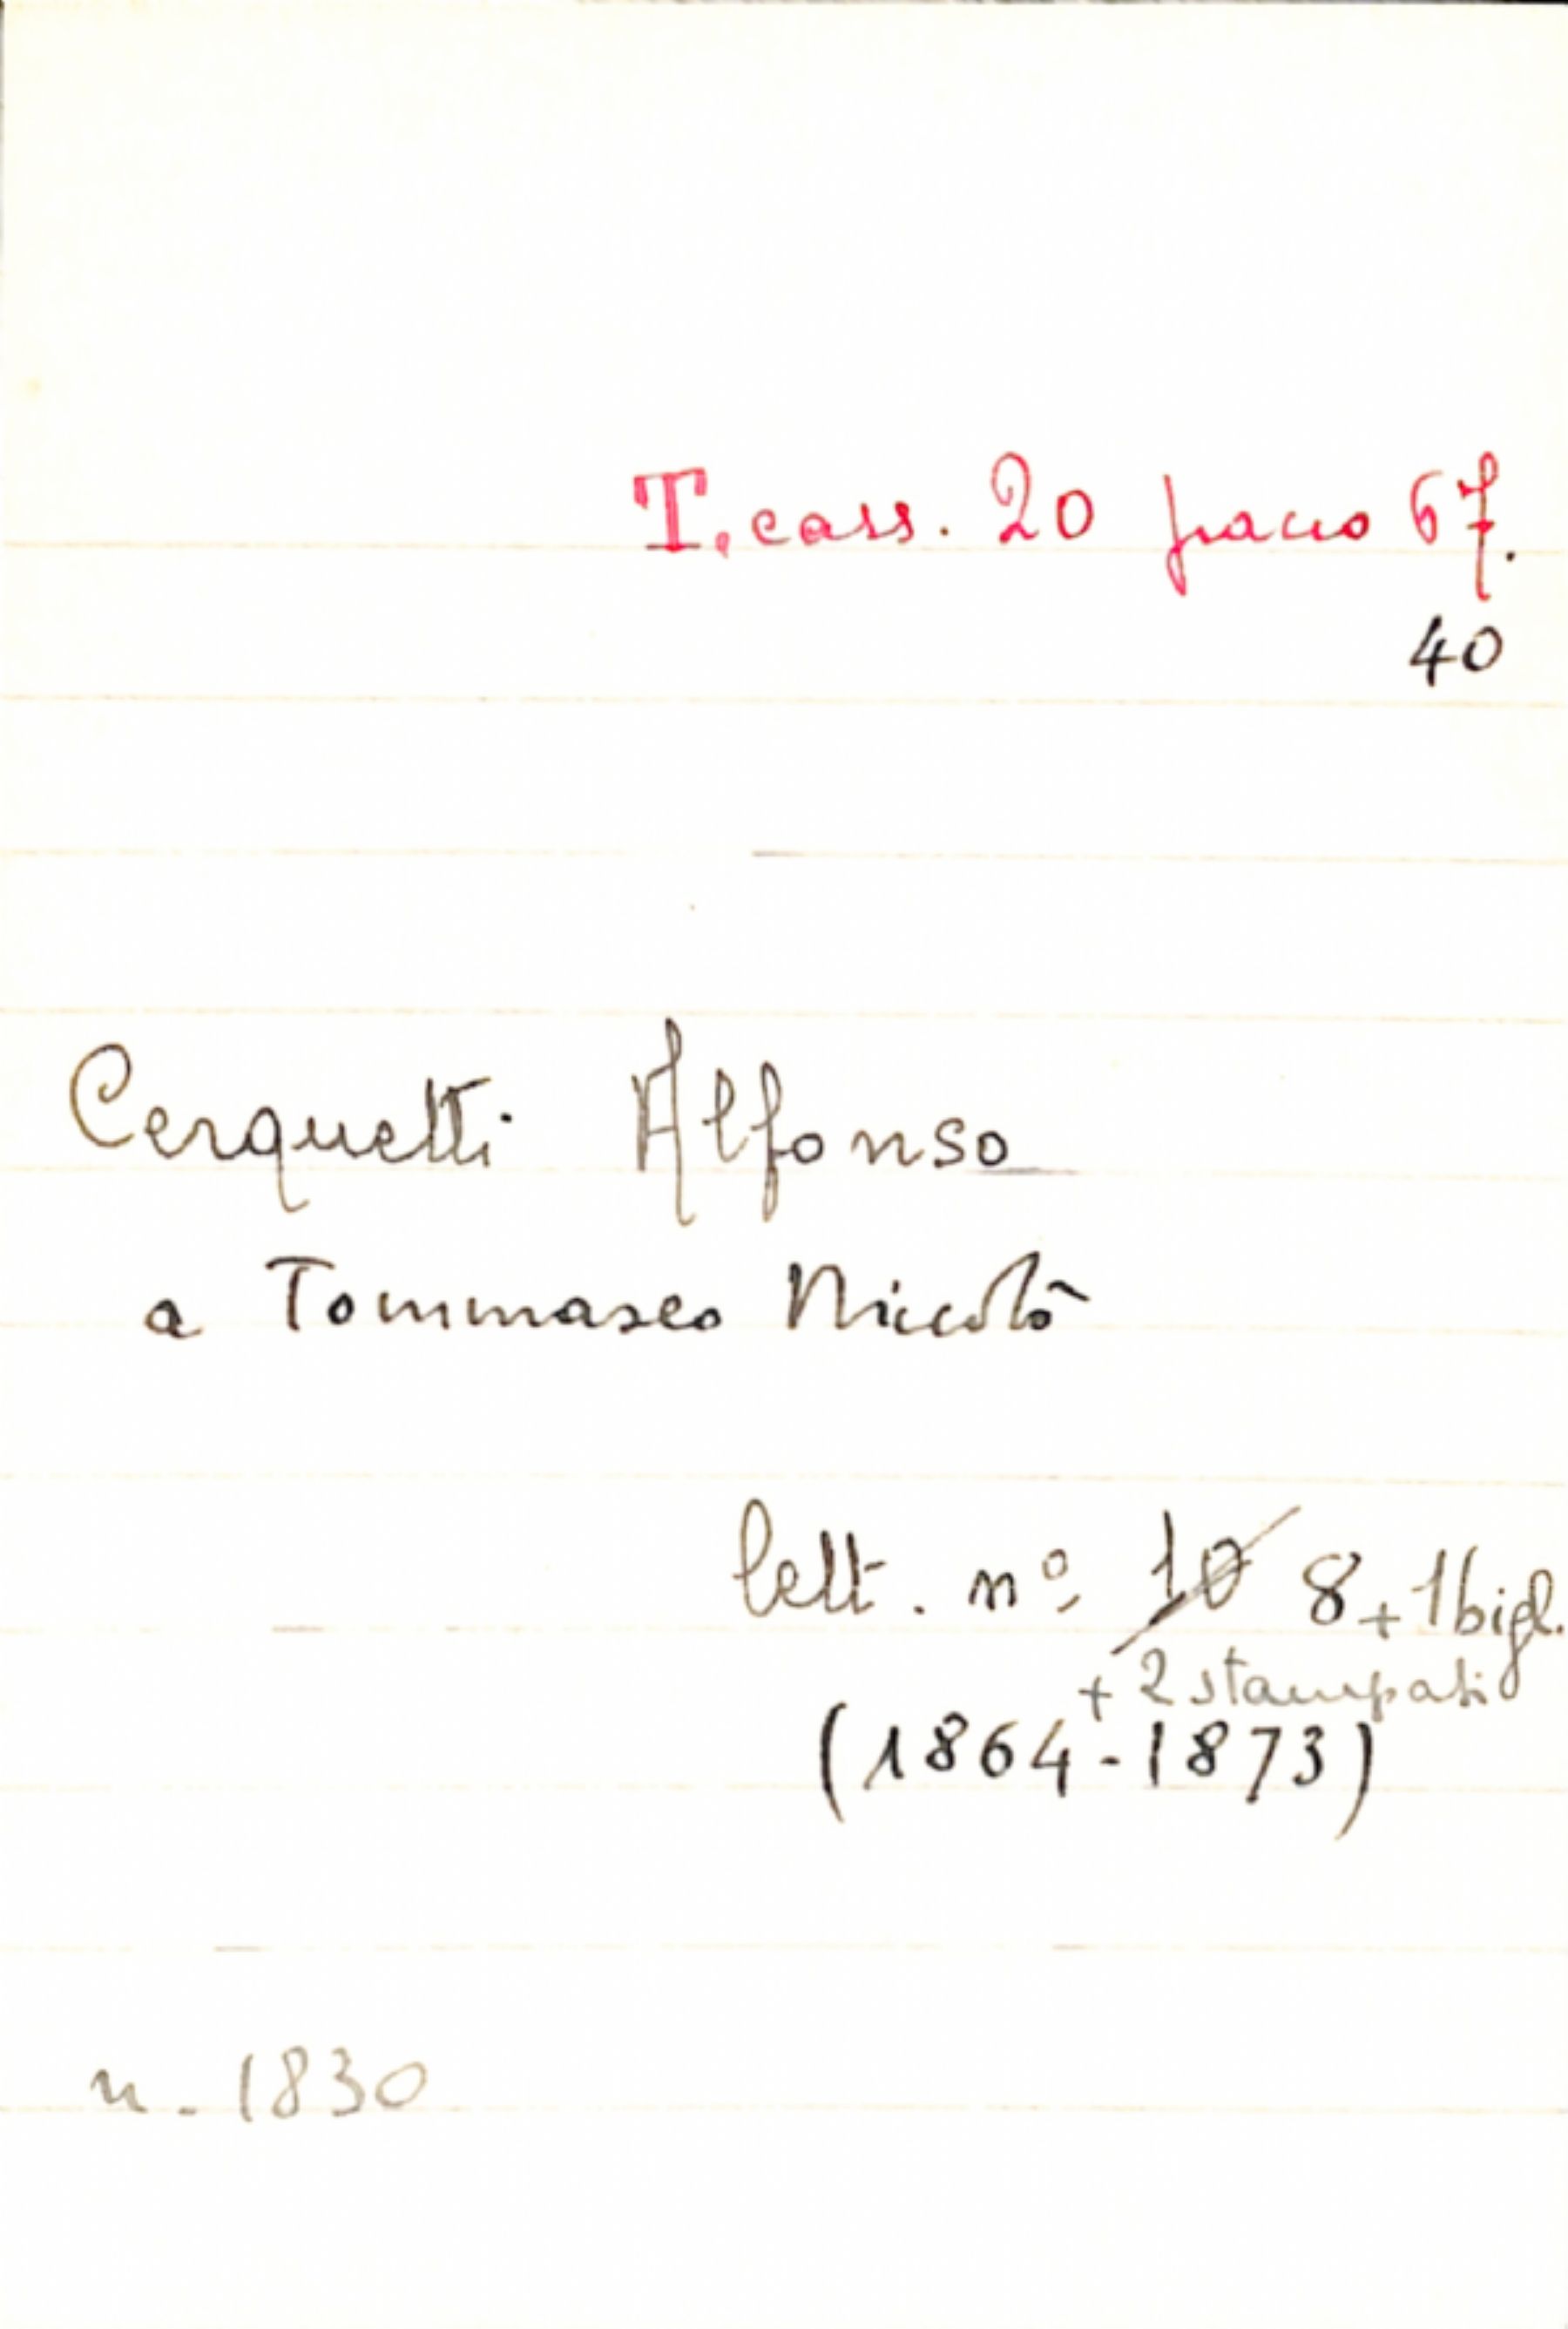 T. cass. 20 pacco 67.
40
Cerquetti Alfonso
a Tommaseo Niccolò
lett. nº 10 8 + 1 bigl.
+ 2 stampati
(1864-1873)
n. 1830